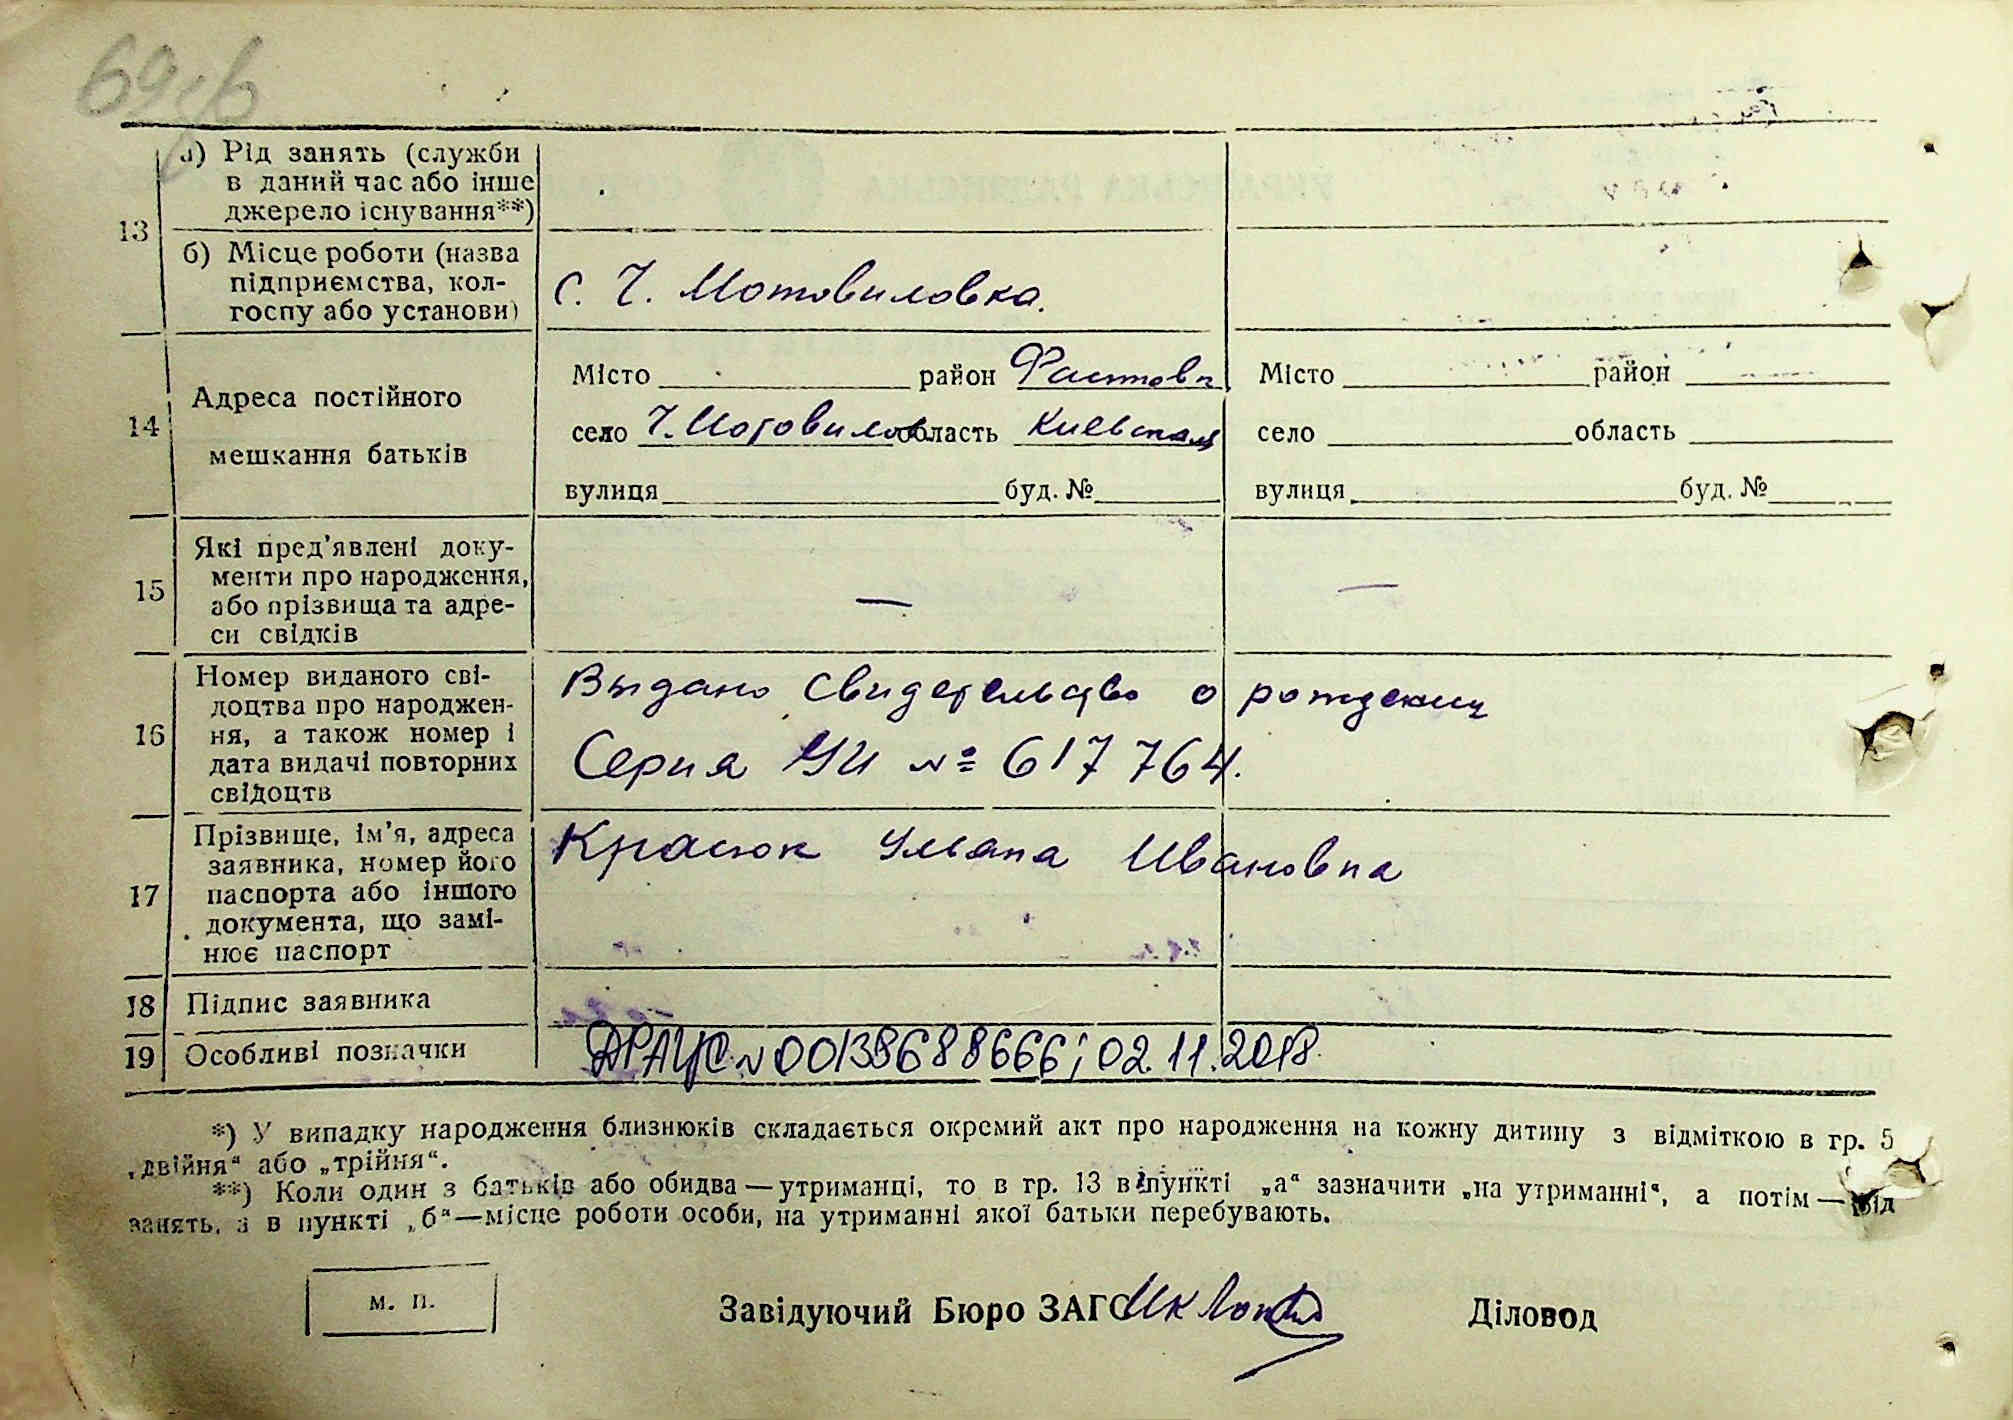 69 зв
13
а) Рід занять (служби
в даний час або інше
джерело існування**)
б) Місце роботи (назва
підприємства, кол-
госпу або установи)
с. Ч. Мотовиловка.
14
Адреса постійного
мешкання батьків
Місто район Фастовк
село Ч. Мотовилов область Киевская
вулиця буд. №
Місто район
село область
вулиця буд. №
15
Які пред'явлені доку-
менти про народження,
або прізвища та адре-
си свідків
— —
16
Номер виданого сві-
доцтва про народжен-
ня, а також номер і
дата видачі повторних
свідоцтв
Выдано свидетельство о рождении
Серия УИ № 617764.
17
Прізвище, ім'я, адреса
заявника, номер його
паспорта або іншого
документа, що замі-
нює паспорт
Красюк Ульяна Ивановна
18 Підпис заявника
19 Особливі позначки
ДРАЦС № 00138688666; 02.11.2018.
*) У випадку народження близнюків складається окремий акт про народження на кожну дитину з відміткою в гр. 5
„двійня“ або „трійня“.
**) Коли один з батьків або обидва — утриманці, то в гр. 13 в пункті „а“ зазначити „на утриманні“, а потім — рід
занять, а в пункті „б“ — місце роботи особи, на утриманні якої батьки перебувають.
м. п.
Завідуючий Бюро ЗАГС
Діловод